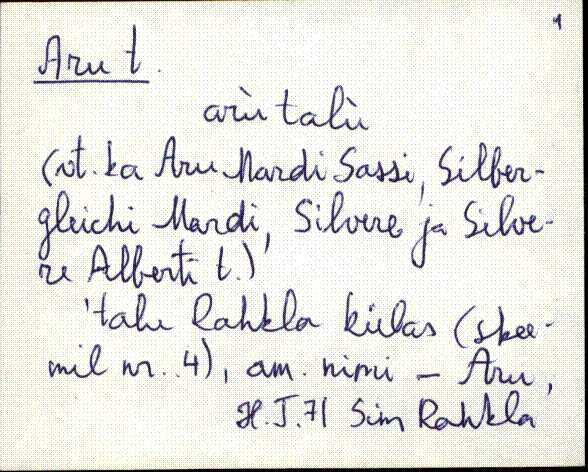 1
Aru t.
arù talù
(vt. ka Aru Mardi Sassi, Silber-
gleichi Mardi, Silvere ja Silve-
re Alberti t.)
'talu Rahkla külas (skee-
mil nr. 4), am. nimi - Aru,
H.J.71 Sim Rahkla